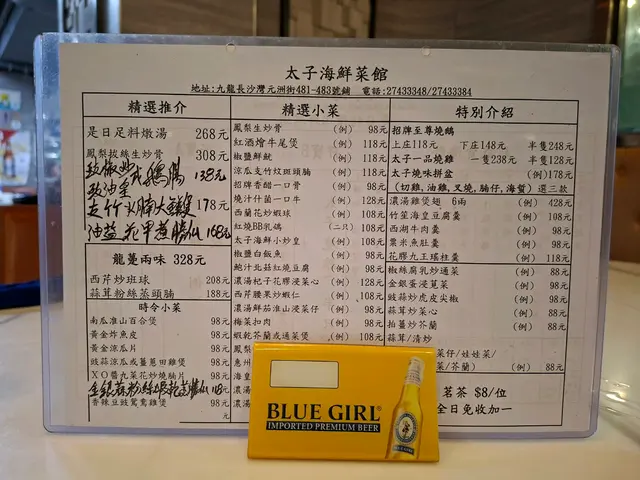 太子海鮮菜館
地址:九龍長沙灣元洲街481-483號舖 電話:27433348/27433384
精選推介
是日足料燉湯 268元
鳳梨拔絲生炒骨 308元
鵝腸 138元
豉油皇
支竹火腩大鱔 178元
油鹽 花甲煮勝仙 168元
龍躉兩味 328元
西芹炒班球 208元
蒜茸粉絲蒸頭腩 188元
時令小菜
南瓜淮山百合煲 98元
黃金炸魚皮 98元
黃金涼瓜片 98元
豉蒜涼瓜或薑蔥田雞煲 98元
XO醬九菜花炒燒腩片 98元
金銀蒜粉絲蝦乾蒸勝仙
香辣豆豉鴛鴦雞煲 98元
元
精選小菜
鳳梨生炒骨 (例) 98元
紅酒燴牛尾煲 (例) 118元
椒鹽鮮魷 (例) 118元
涼瓜支竹炆斑頭腩 (例) 118元
招牌香醋一口骨 (例) 98元
燒汁什菌一口牛 (例) 108元
西蘭花炒蝦球 (例) 128元
紅燒BB乳鴿 (二只) 108元
太子海鮮小炒皇 (例) 108元
椒鹽白飯魚 (例) 98元
鮑汁北菇紅燒豆腐 (例) 98元
濃湯杞子花膠浸菜心 (例) 128元
西芹腰果炒蝦仁 (例) 108元
濃湯鮮茄淮山浸菜仔 (例) 98元
梅菜扣肉 (例) 98元
蝦乾芥蘭或通菜煲 (例) 98元
鳳梨
惠州
濃湯
高湯
濃湯
特別介紹
招牌至尊燒鵝
上庄118元 下庄148元 半隻248元
太子一品燒雞 一隻238元 半隻128元
太子燒味拼盆 (例) 178元
(切雞,油雞,叉燒,腩仔,海蜇) 選三款
濃湯雞煲翅 6兩 (例) 428元
竹笙海皇豆腐羹 (例) 108元
西湖牛肉羹 (例) 98元
粟米魚肚羹 (例) 98元
花膠九王瑤柱羹 (例) 118元
椒絲腐乳炒通菜 (例) 88元
金銀蛋浸莧菜 (例) 98元
豉蒜炒虎皮尖椒 (例) 98元
蒜茸炒菜心 (例) 88元
拍薑炒芥蘭 (例) 88元
蒜茸/清炒
菜仔/娃娃菜/
菜/芥蘭) (例) 88元
茗茶 $8/位
全日免收加一
BLUE GIRL
IMPORTED PREMIUM BEER